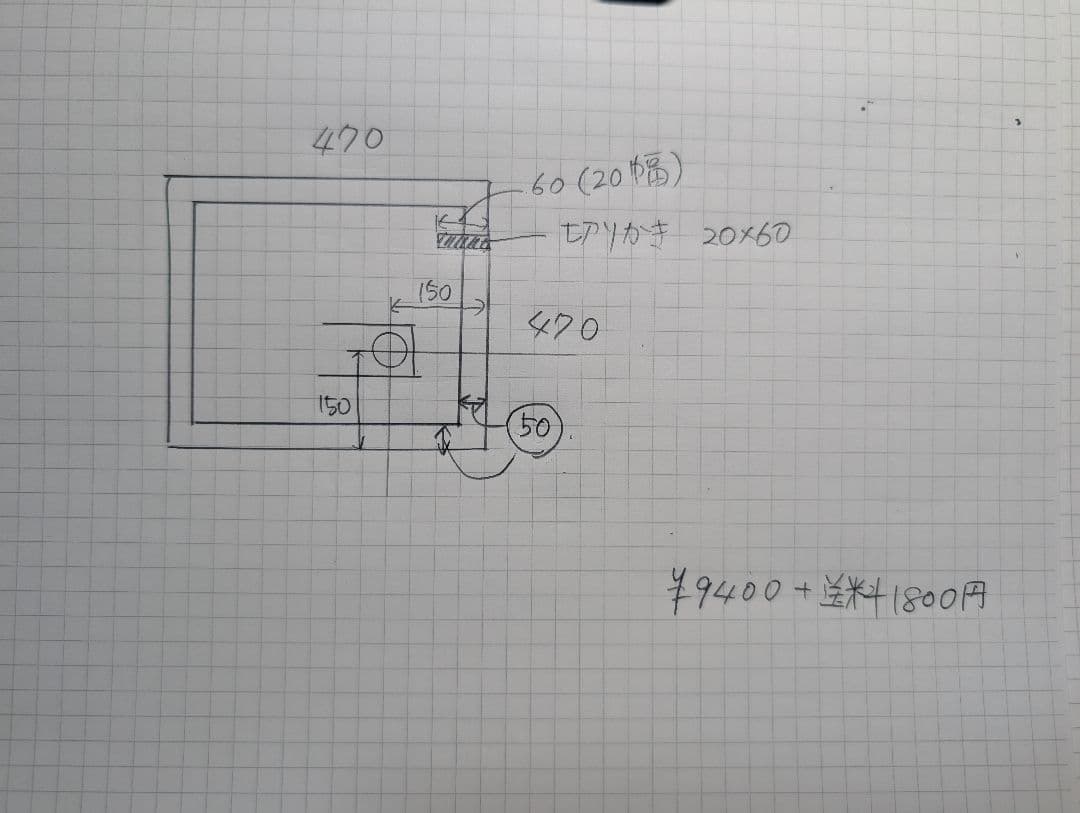 470
60(20幅)
切りかき 20×60
150
470
150
50
¥9400+送料1800円